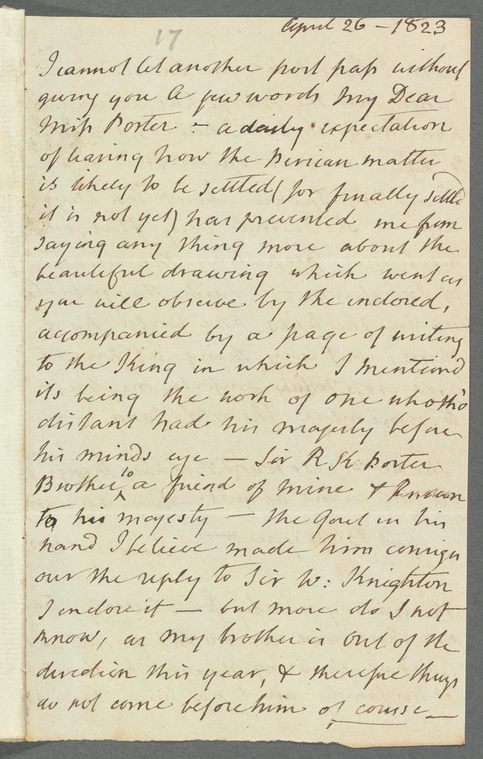 April 26 - 1823
17
I cannot let another post pass without
giving you a few words My Dear
Miss Porter - a daily expectation
of hearing how the Persian matter
is likely to be settled (for finally settld
it is not yet) has prevented me from
saying any thing more about the
beautiful drawing which went as
you will observe by the inclosed,
accompanied by a page of writing
to the King in which I mentiond
its being the work of one who tho
distant had his majesty before
his minds eye — Sir R K Porter
Brother to a friend of mine &
to his majesty — the Gout in his
hand I believe made him consign
our the reply to Sir W: Knighton
I inclose it — but more do I not
know, as my brother is out of the
direction this year, & therefore things
do not come before him of course —